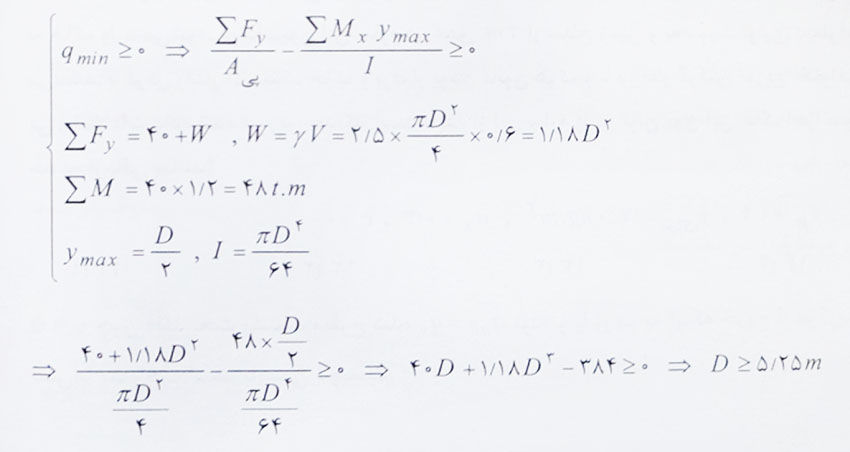 q min ≥ ۰ ⇒ ∑F_y / A_پی − ∑M_x y_max / I ≥ ۰
∑F_y = ۴۰+W , W = γV = ۲/۵ × πD^۲/۴ × ۰/۶ = ۱/۱۸D^۲
∑M = ۴۰×۱/۲ = ۴۸ t.m
y_max = D/۲ , I = πD^۴/۶۴
⇒ (۴۰+۱/۱۸D^۲)/(πD^۲/۴) − (۴۸×D/۲)/(πD^۴/۶۴) ≥ ۰ ⇒ ۴۰D+۱/۱۸D^۳−۳۸۴ ≥ ۰ ⇒ D ≥ ۵/۲۵ m